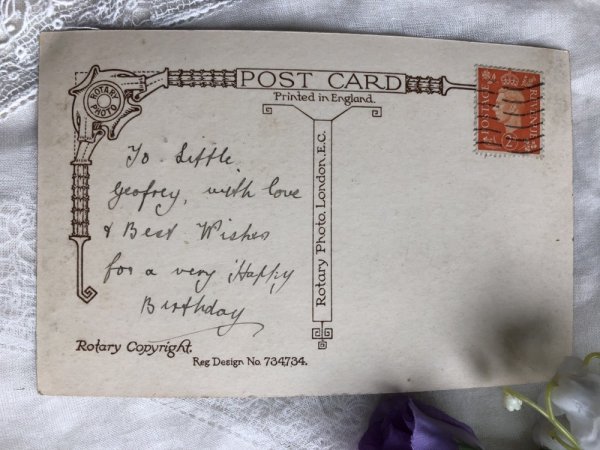 ROTARY PHOTO
POST CARD
Printed in England.
POSTAGE REVENUE
2D
To Little
Geofrey, with love
& Best Wishes
for a very Happy
Birthday
Rotary Photo, London, E.C.
Rotary Copyright.
Reg Design No. 734,734.